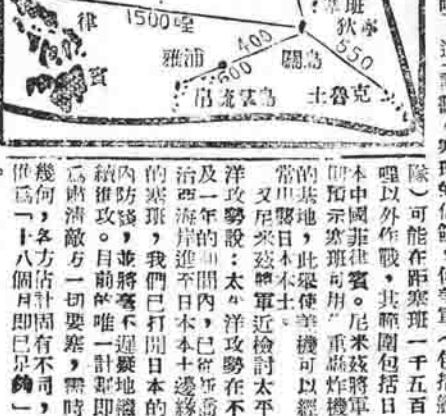 律賓
1500哩
塞班
狄寧
400
550
雅浦
關島
600
帛琉羣島
土魯克
塞班作戰，使美軍（包括
隊）可能在距塞班一千五百
哩以外作戰，其範圍包括日
本中國菲律賓。尼米茲將軍
即預示塞班可用 重轟炸機
的基地，此舉使美機可以經
常出襲日本本土。
又尼米茲將軍近檢討太平
洋攻勢說：太平洋攻勢在不
及一年的期間內，已從
治西海岸進至日本本土邊緣
的塞班，我們已打開日本的
內防綫，並將毫不遲疑地繼
續進攻。目前的唯一計劃即
爲肅清敵方一切要塞，需時
幾何，各方估計固有不同，
爲「十八個月即已足夠」